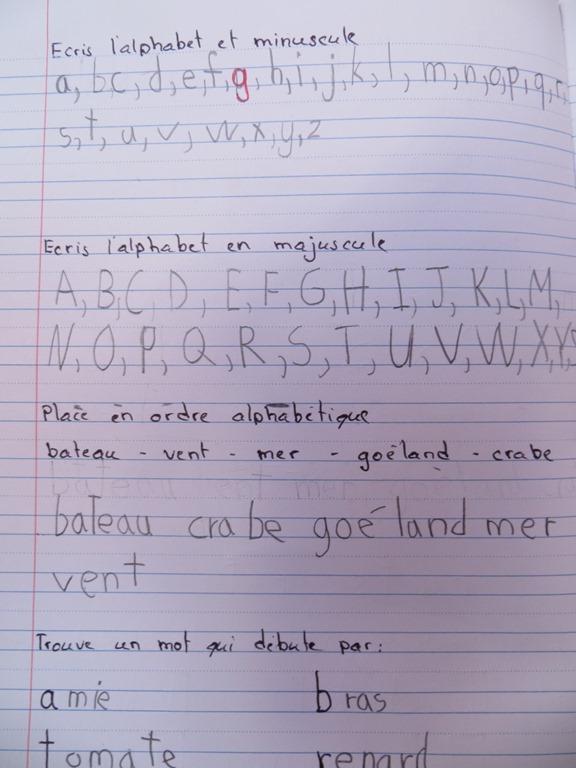 Ecris l'alphabet et minuscule
a, b c, d, e, f, g, h, i, j, k, l, m, n, o, p, q, r,
s, t, u, v, w, x, y, z
Ecris l'alphabet en majuscule
A, B, C, D, E, F, G, H, I, J, K, L, M,
N, O, P, Q, R, S, T, U, V, W, X, Y,
Place en ordre alphabétique
bateau - vent - mer - goëland - crabe
bateau crabe goéland mer
vent
Trouve un mot qui débute par:
amie bras
tomate renard